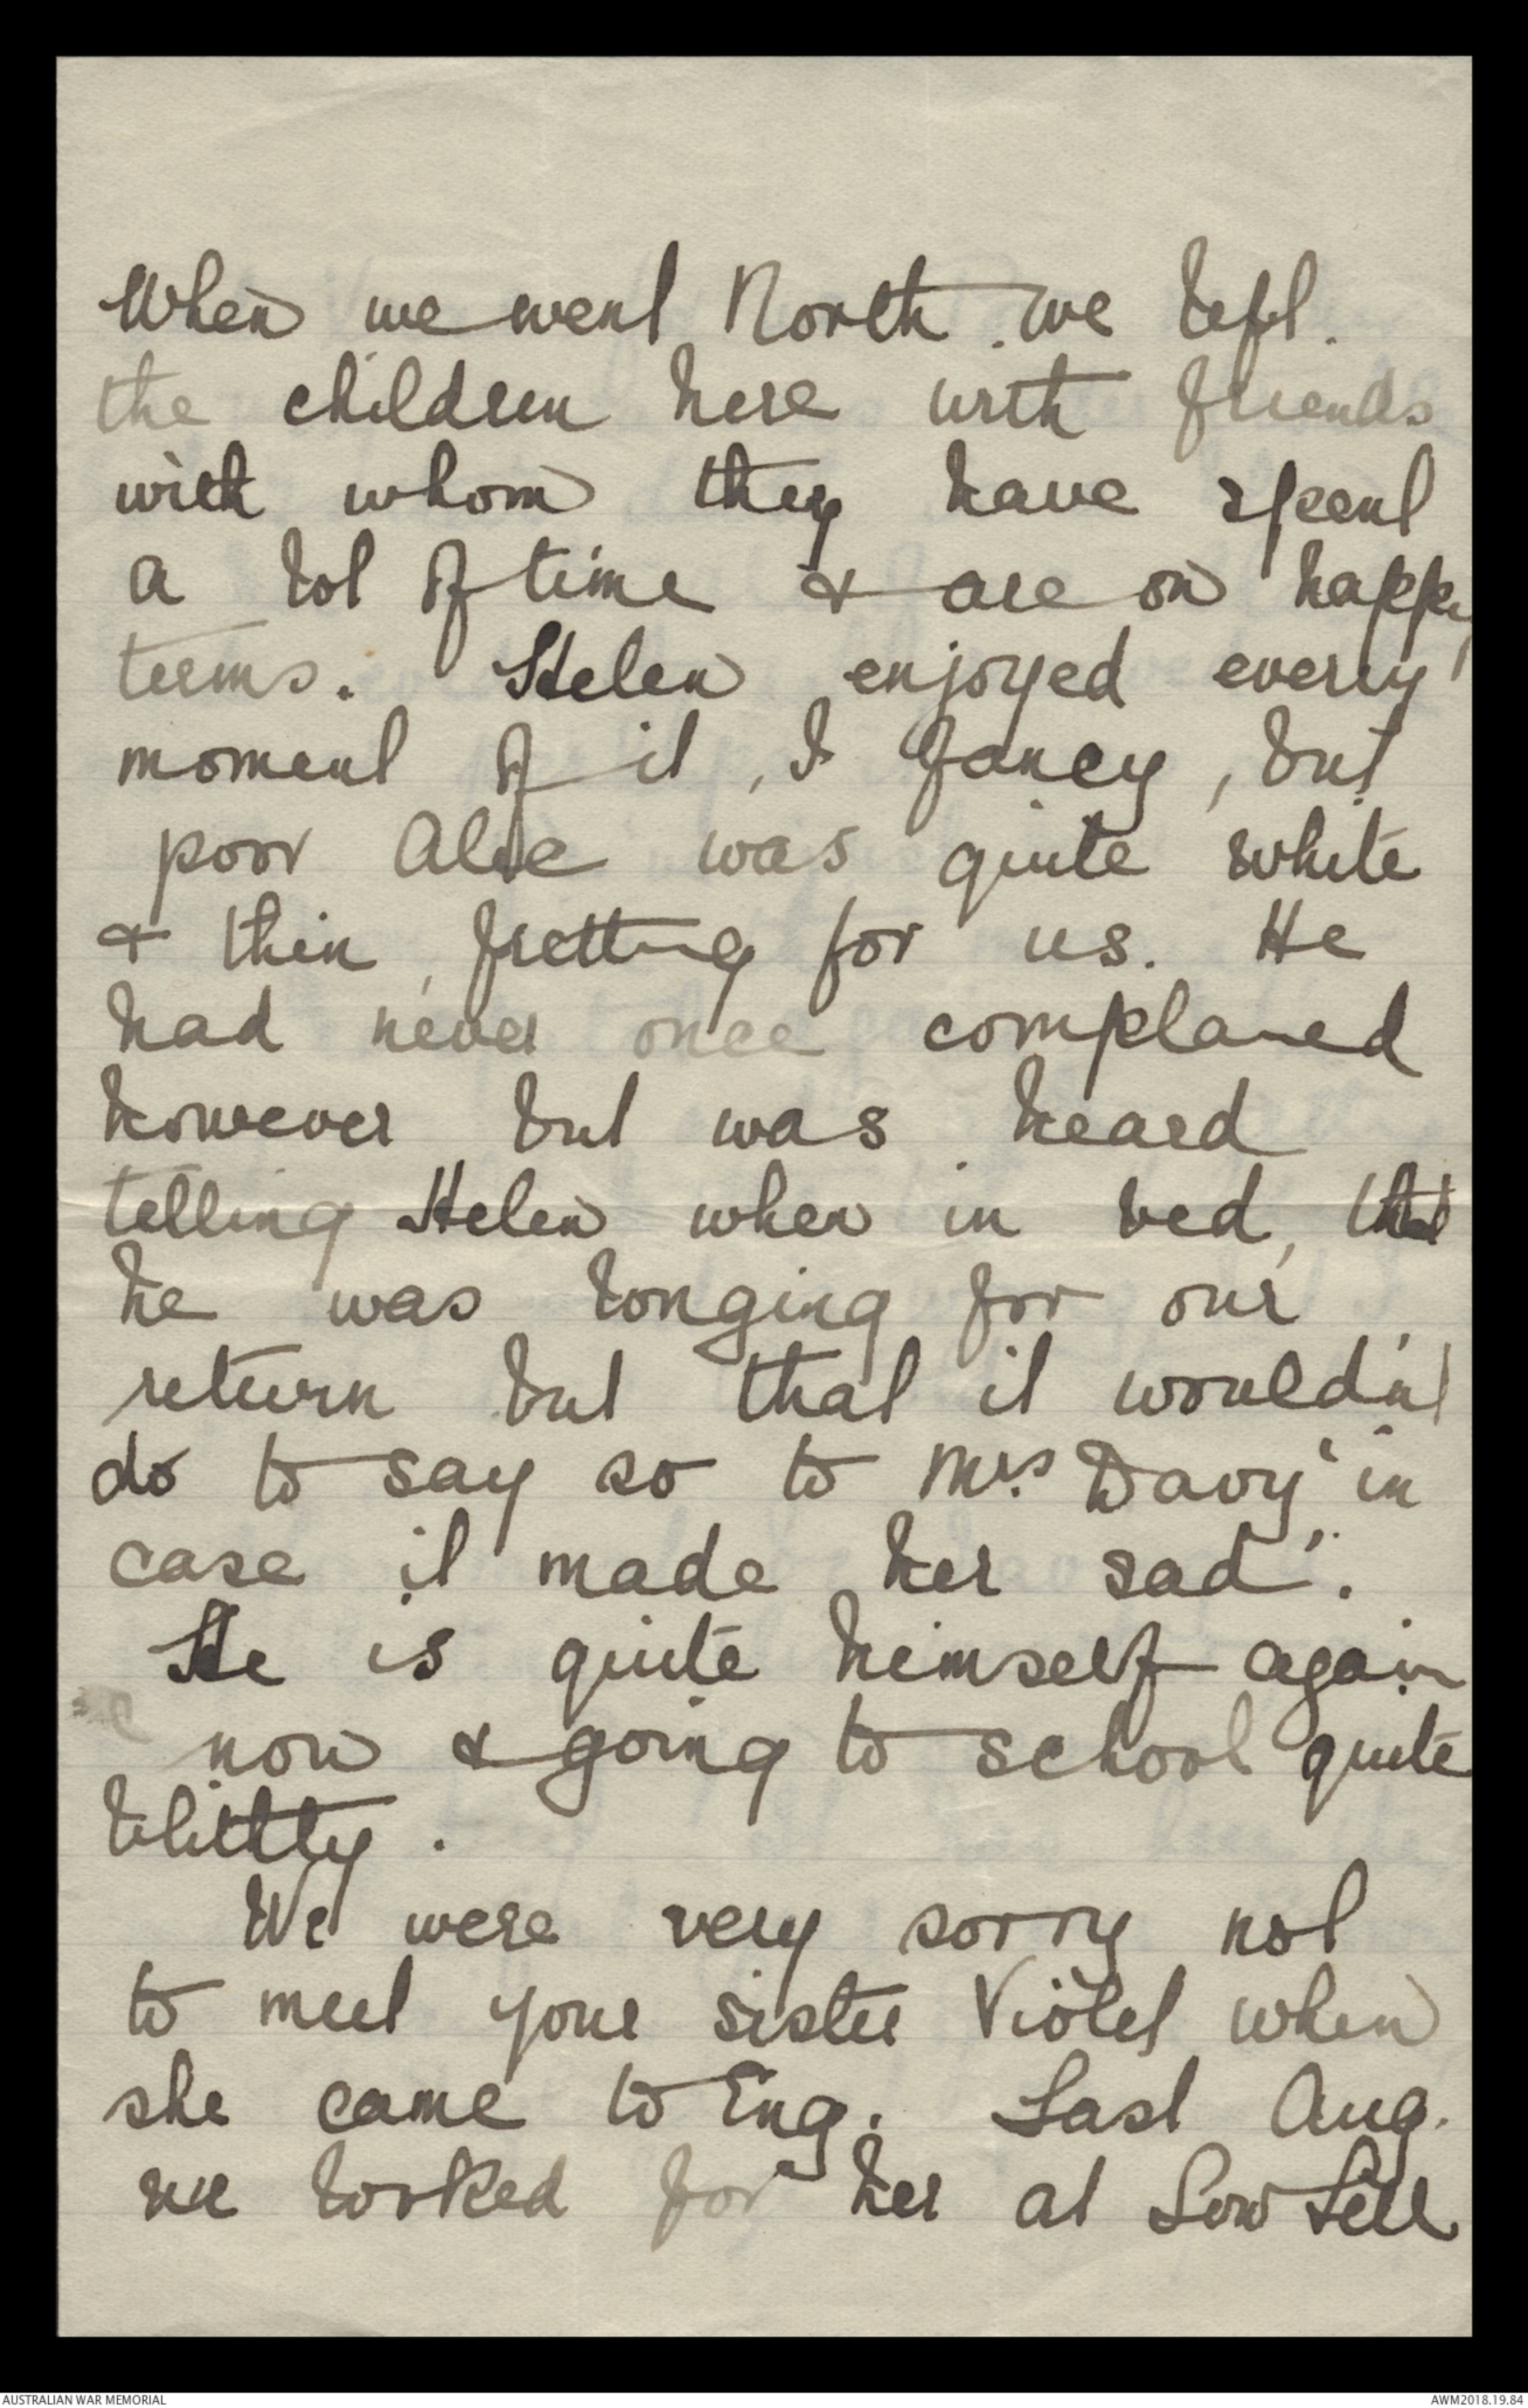 When we went North we left
the children here with friends
with whom they have spent
a lot of time & are on happy
terms. Helen enjoyed every
moment of it, I fancy, but
poor was quite white
& thin, fretting for us. He
had never once complained
however but was heard
telling Helen when in bed, that
he was longing for our
return but that it would'nt
do to say so to Mrs Davy "in
case it made her sad".
He is quite himself again
now & going to school quite
blithly.
We were very sorry not
to meet your sister Violet when
she came to Eng. Last Aug.
we looked for her at Low Fell
AUSTRALIAN WAR MEMORIAL
AWM2018.19.84